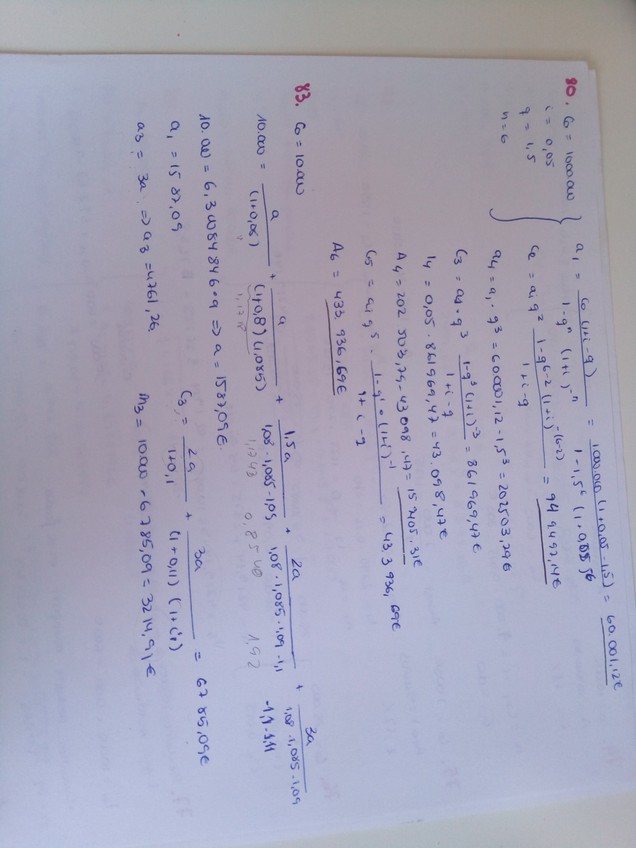 80. C0 = 1000000
i = 0,05
q = 1,5
n = 6
a1 = C0 (1+i-q) / 1-q^n (1+i)^-n = 1000.000 (1+0,05-1,5) / 1-1,5^6 (1+0,05)^-6 = 60.001,12€
C2 = a1 q^2 1-q^6-2 (1+i)^-(6-2) / 1+i-q = 949452,14€
a4 = a1 · q^3 = 60001,12 · 1,5^3 = 202503,79€
C3 = a1 · q^3 1-q^3 (1+i)^-3 / 1+i-q = 861969,47€
I4 = 0,05 · 861969,47 = 43.098,47€
A4 = 202503,79 - 43098,47 =
C5 = a1 q^5 · 1-q^1 · (1+i)^-1 / 1+i-q = 433936,69€
A6 = 433.936,69€
83. C0 = 10.000
10.000 = a / (1+0,08) + a / (1+0,8) (1,085) + 1,5a / 1,08 · 1,085 · 1,09 + 2a / 1,08 · 1,085 · 1,09 · 1,1 + 3a / 1,08 · 1,085 · 1,09 · 1,1 · 1,11
10.000 = 6,3 · a ⇒ a = 1587,09€
a1 = 1587,09
a3 = 3a ⇒ a3 = 4761,26
C3 = 2a / 1+0,1 + 3a / (1+0,11) (1+1,1) = 6785,09€
m3 = 10.000 - 6785,09 = 3214,91€